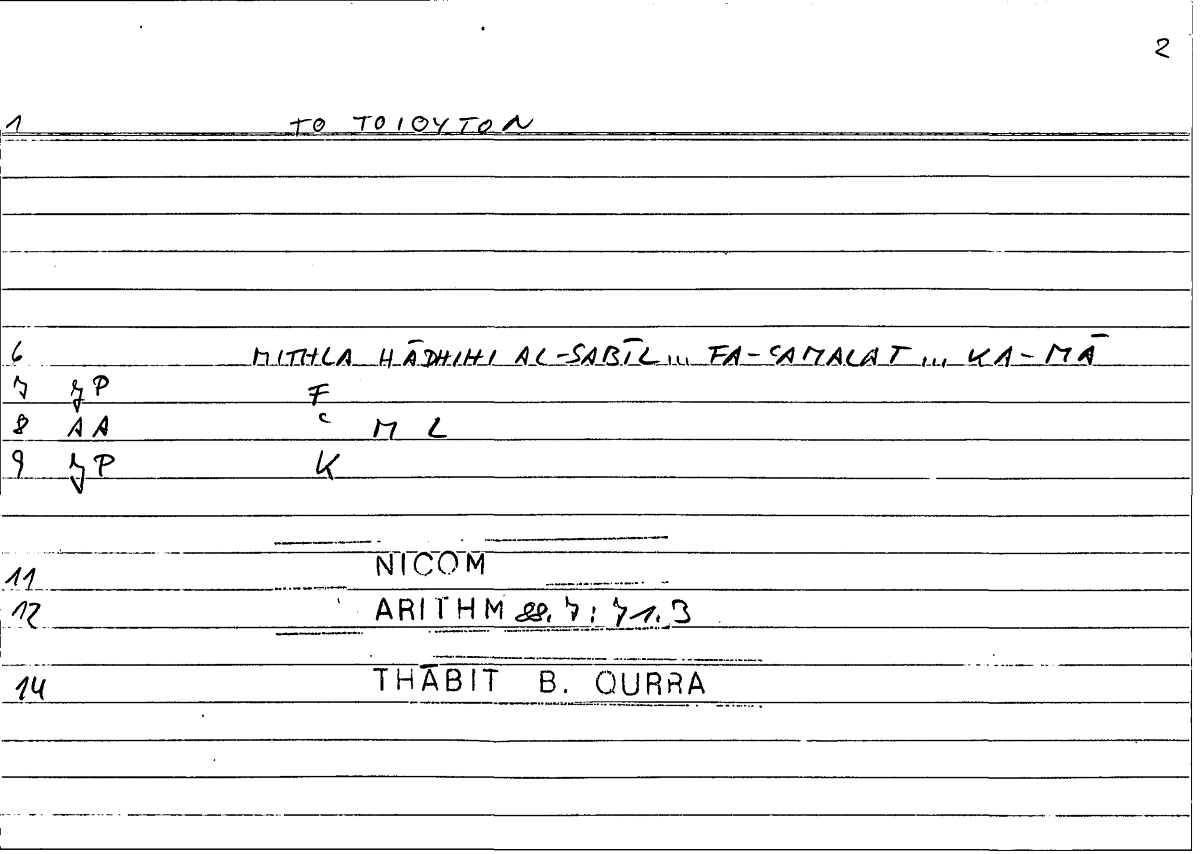 2
1 ΤΟ ΤΟΙΟΥΤΟΝ
6 MITHLA HĀDHIHI AL-SABĪL... FA-ʿAMALAT ... KA-MĀ
7 JP F
8 AA ʿ M L
9 JP K
11 NICOM
12 ARITHM 88.7: 71.3
14 THĀBIT B. QURRA